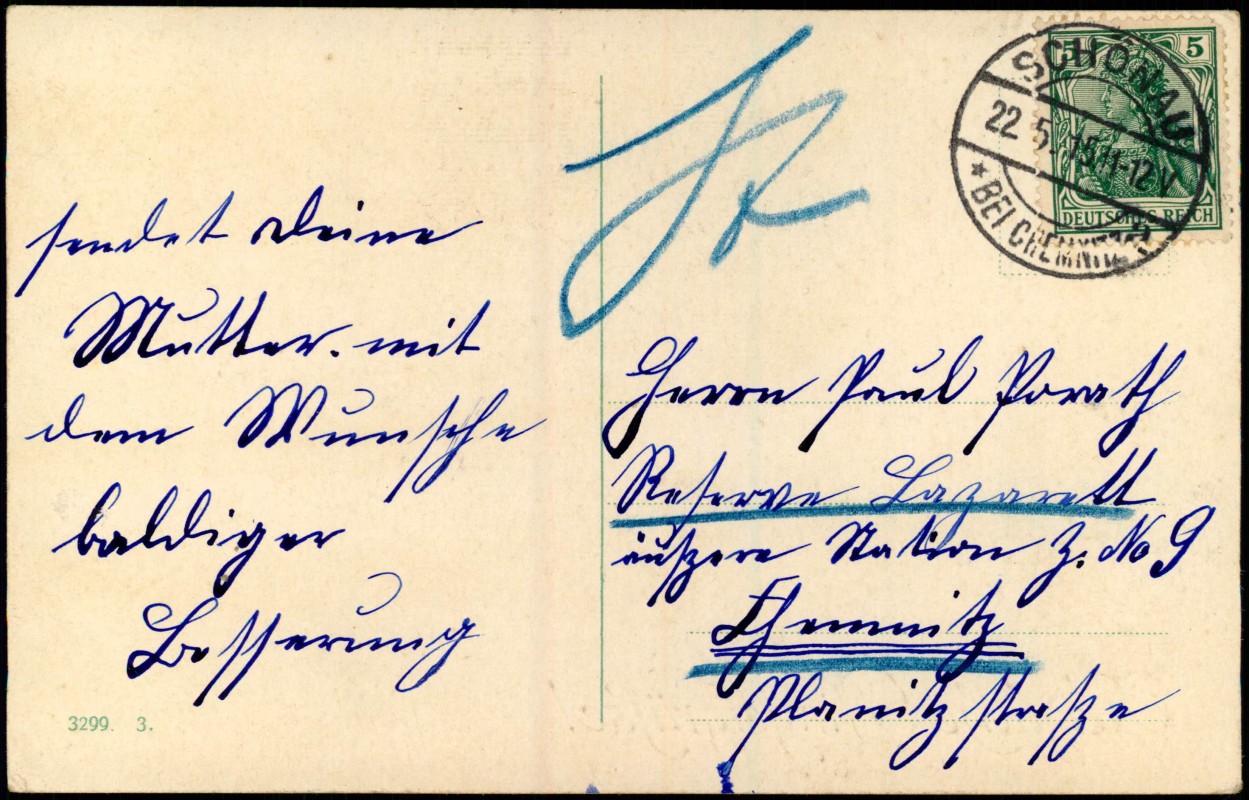 sendet Deine
Mutter. mit
dem Wunsche
baldiger
Besserung
3299. 3.
5 5
DEUTSCHES REICH
SCHÖNAU
22.5.15.11-12V
* BEI CHEMNITZ
Herrn Paul Porath
Reserve Lazarett
äußere Station Z. No 9
Chemnitz
Planitzstraße